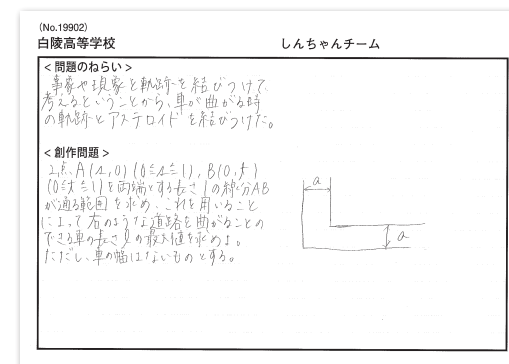 (No.19902)
白陵高等学校
しんちゃんチーム
<問題のねらい>
事象や現象と軌跡を結びつけて
考えるということから、車が曲がる時
の軌跡とアステロイドを結びつけた。
<創作問題>
2点A(s,0)(0≦s≦1),B(0,t)
(0≦t≦1)を両端とする長さ1の線分AB
が通る範囲を求め、これを用いること
によって右のような道路を曲がることの
できる車の長さlの最大値を求めよ。
ただし、車の幅はないものとする。
a
a